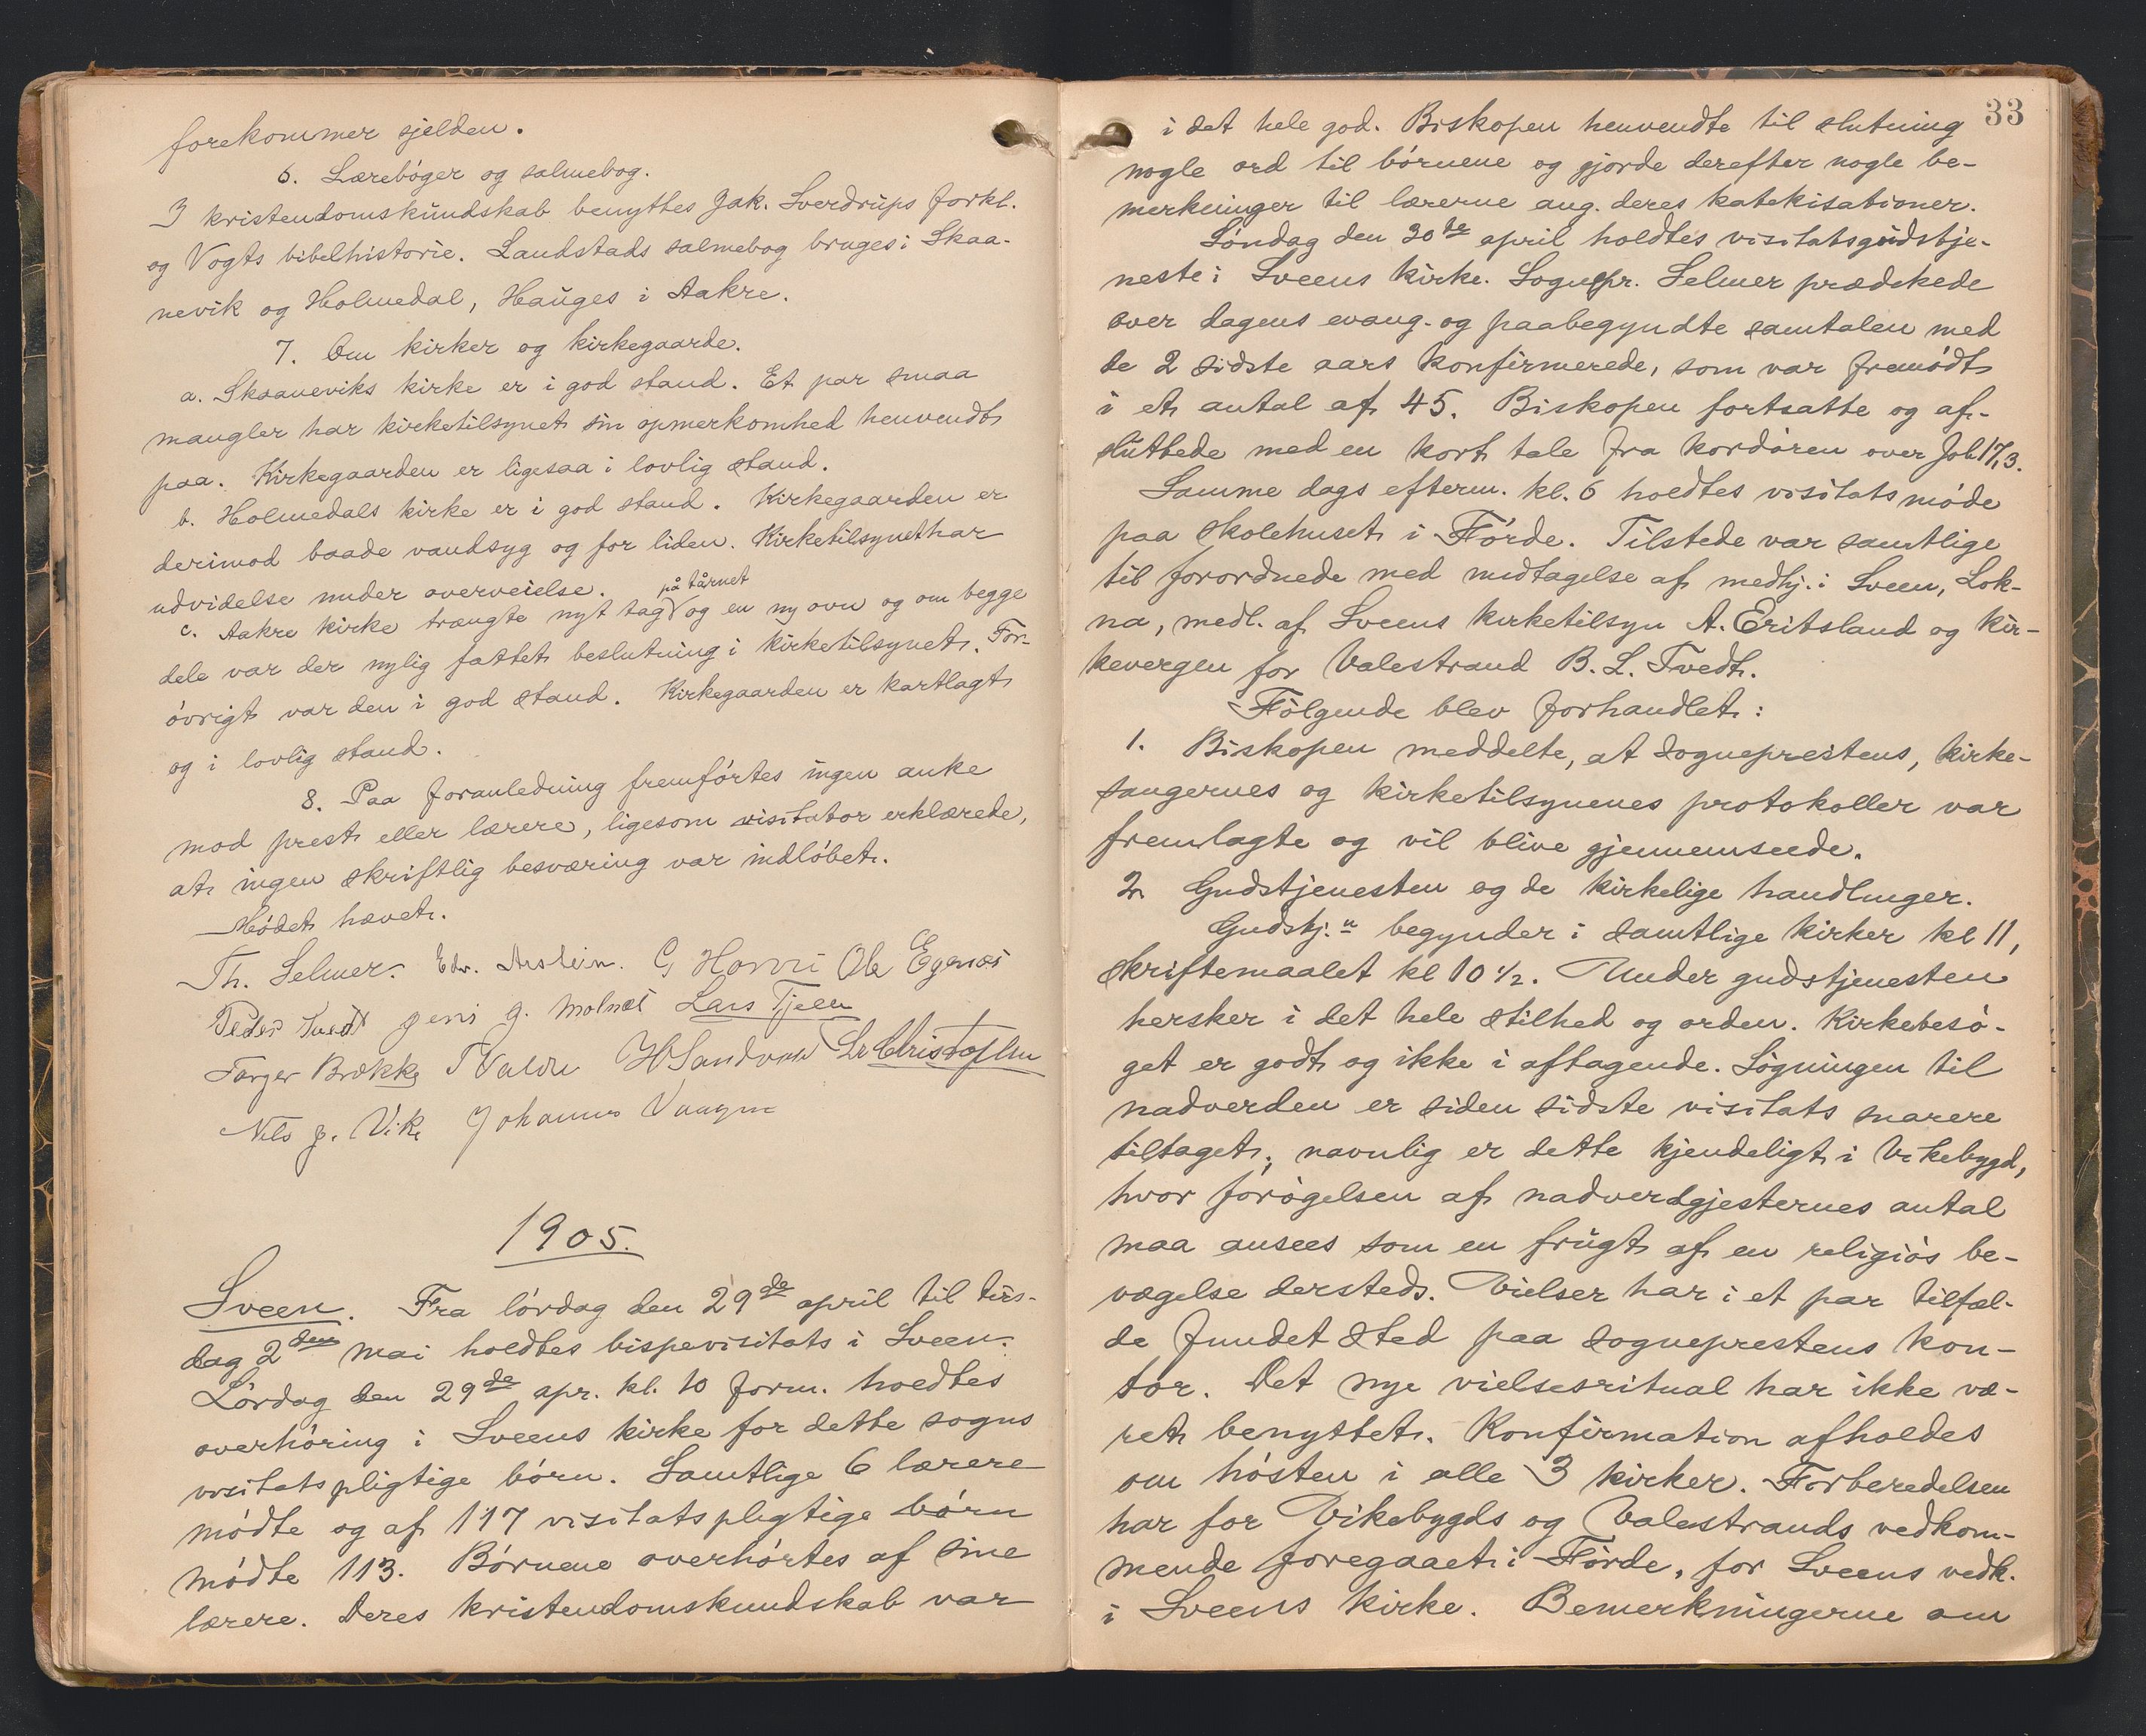 forekommer sjelden.
6. Lærebøger og salmebog.
I kristendomskundskab benyttes Jak. Sverdrups forkl.
og Vogts bibelhistorie. Landstads salmebog bruges i Skaa-
nevik og Holmedal, Hauges i Aakre.
7. Om kirker og kirkegaarde.
a. Skaaneviks kirke er i god stand. Et par smaa
mangler har kirketilsynet sin opmerkomhed henvendt
paa. Kirkegaarden er ligesaa i lovlig stand.
b. Holmedals kirke er i god stand. Kirkegaarden er
derimod baade vandsyg og for liden. Kirketilsynet har
udvidelse under overveielse.
på tårnet
c. Aakre kirke trængte nyt tag og en ny ovn og om begge
dele var der nylig fattet beslutning i kirketilsynet. For-
øvrigt var den i god stand. Kirkegaarden er kartlagt
og i lovlig stand.
8. Paa foranledning fremførtes ingen anke
mod prest eller lærere, ligesom visitator erklærede,
at ingen skriftlig besværing var indløbet.
Mødet hævet.
Th. Selmer. Edv. Arstein. G Ole Egenæs
Peder Tvedt Jens J. Molnæs Lars Tjelle
Torger Brække T Valdre H Sandvik Chr Christophsen
Nils J. Vik Johannes Vaagen
1905.
Sveen. Fra lørdag den 29de april til tirs-
dag 2den mai holdtes bispevisitats i Sveen.
Lørdag den 29de apr. kl. 10 form. holdtes
overhøring i Sveens kirke for dette sogns
visitatspligtige børn. Samtlige 6 lærere
mødte og af 117 visitatspligtige børn
mødte 113. Børnene overhørtes af sine
lærere. Deres kristendomskundskab var
33
i det hele god. Biskopen henvendte til slutning
nogle ord til børnene og gjorde derefter nogle be-
merkninger til lærerne ang. deres katekisationer.
Søndag den 30de april holdtes visitatsgudstje-
neste i Sveens kirke. Sognepr. Selmer prædikede
over dagens evang. og paabegyndte samtalen med
de 2 sidste aars konfirmerede, som var fremødt
i et antal af 45. Biskopen fortsatte og af-
sluttede med en kort tale fra kordøren over Joh 17,3.
Samme dags efterm. kl. 6 holdtes visitatsmøde
paa skolehuset i Førde. Tilstede var samtlige
til forordnede med undtagelse af medhj. i Sveen, Lok-
na, medl. af Sveens kirketilsyn A. Eritsland og kir-
kevergen for Valestrand B. L. Tvedt.
Følgende blev forhandlet:
1. Biskopen meddelte, at sogneprestens, kirke-
sangernes og kirketilsynenes protokoller var
fremlagte og vil blive gjennemseede.
2. Gudstjenesten og de kirkelige handlinger.
Gudstj.n begynder i samtlige kirker kl 11,
skriftemaalet kl 10 1/2. Under gudstjenesten
hersker i det hele stilhed og orden. Kirkebesø-
get er godt og ikke i aftagende. Søgningen til
nadverden er siden sidste visitats snarere
tiltaget; navnlig er dette kjendeligt i Vikebygd,
hvor forøgelsen af nadverdgjesternes antal
maa ansees som en frugt af en religiøs be-
vægelse dersteds. Vielser har i et par tilfæl-
de fundet sted paa sogneprestens kon-
tor. Det nye vielsesritual har ikke væ-
ret benyttet. Konfirmation afholdes
om høsten i alle 3 kirker. Forberedelsen
har for Vikebygds og Valestrands vedkom-
mende foregaaet i Førde, for Sveens vedk.
i Sveens kirke. Bemerkningerne om